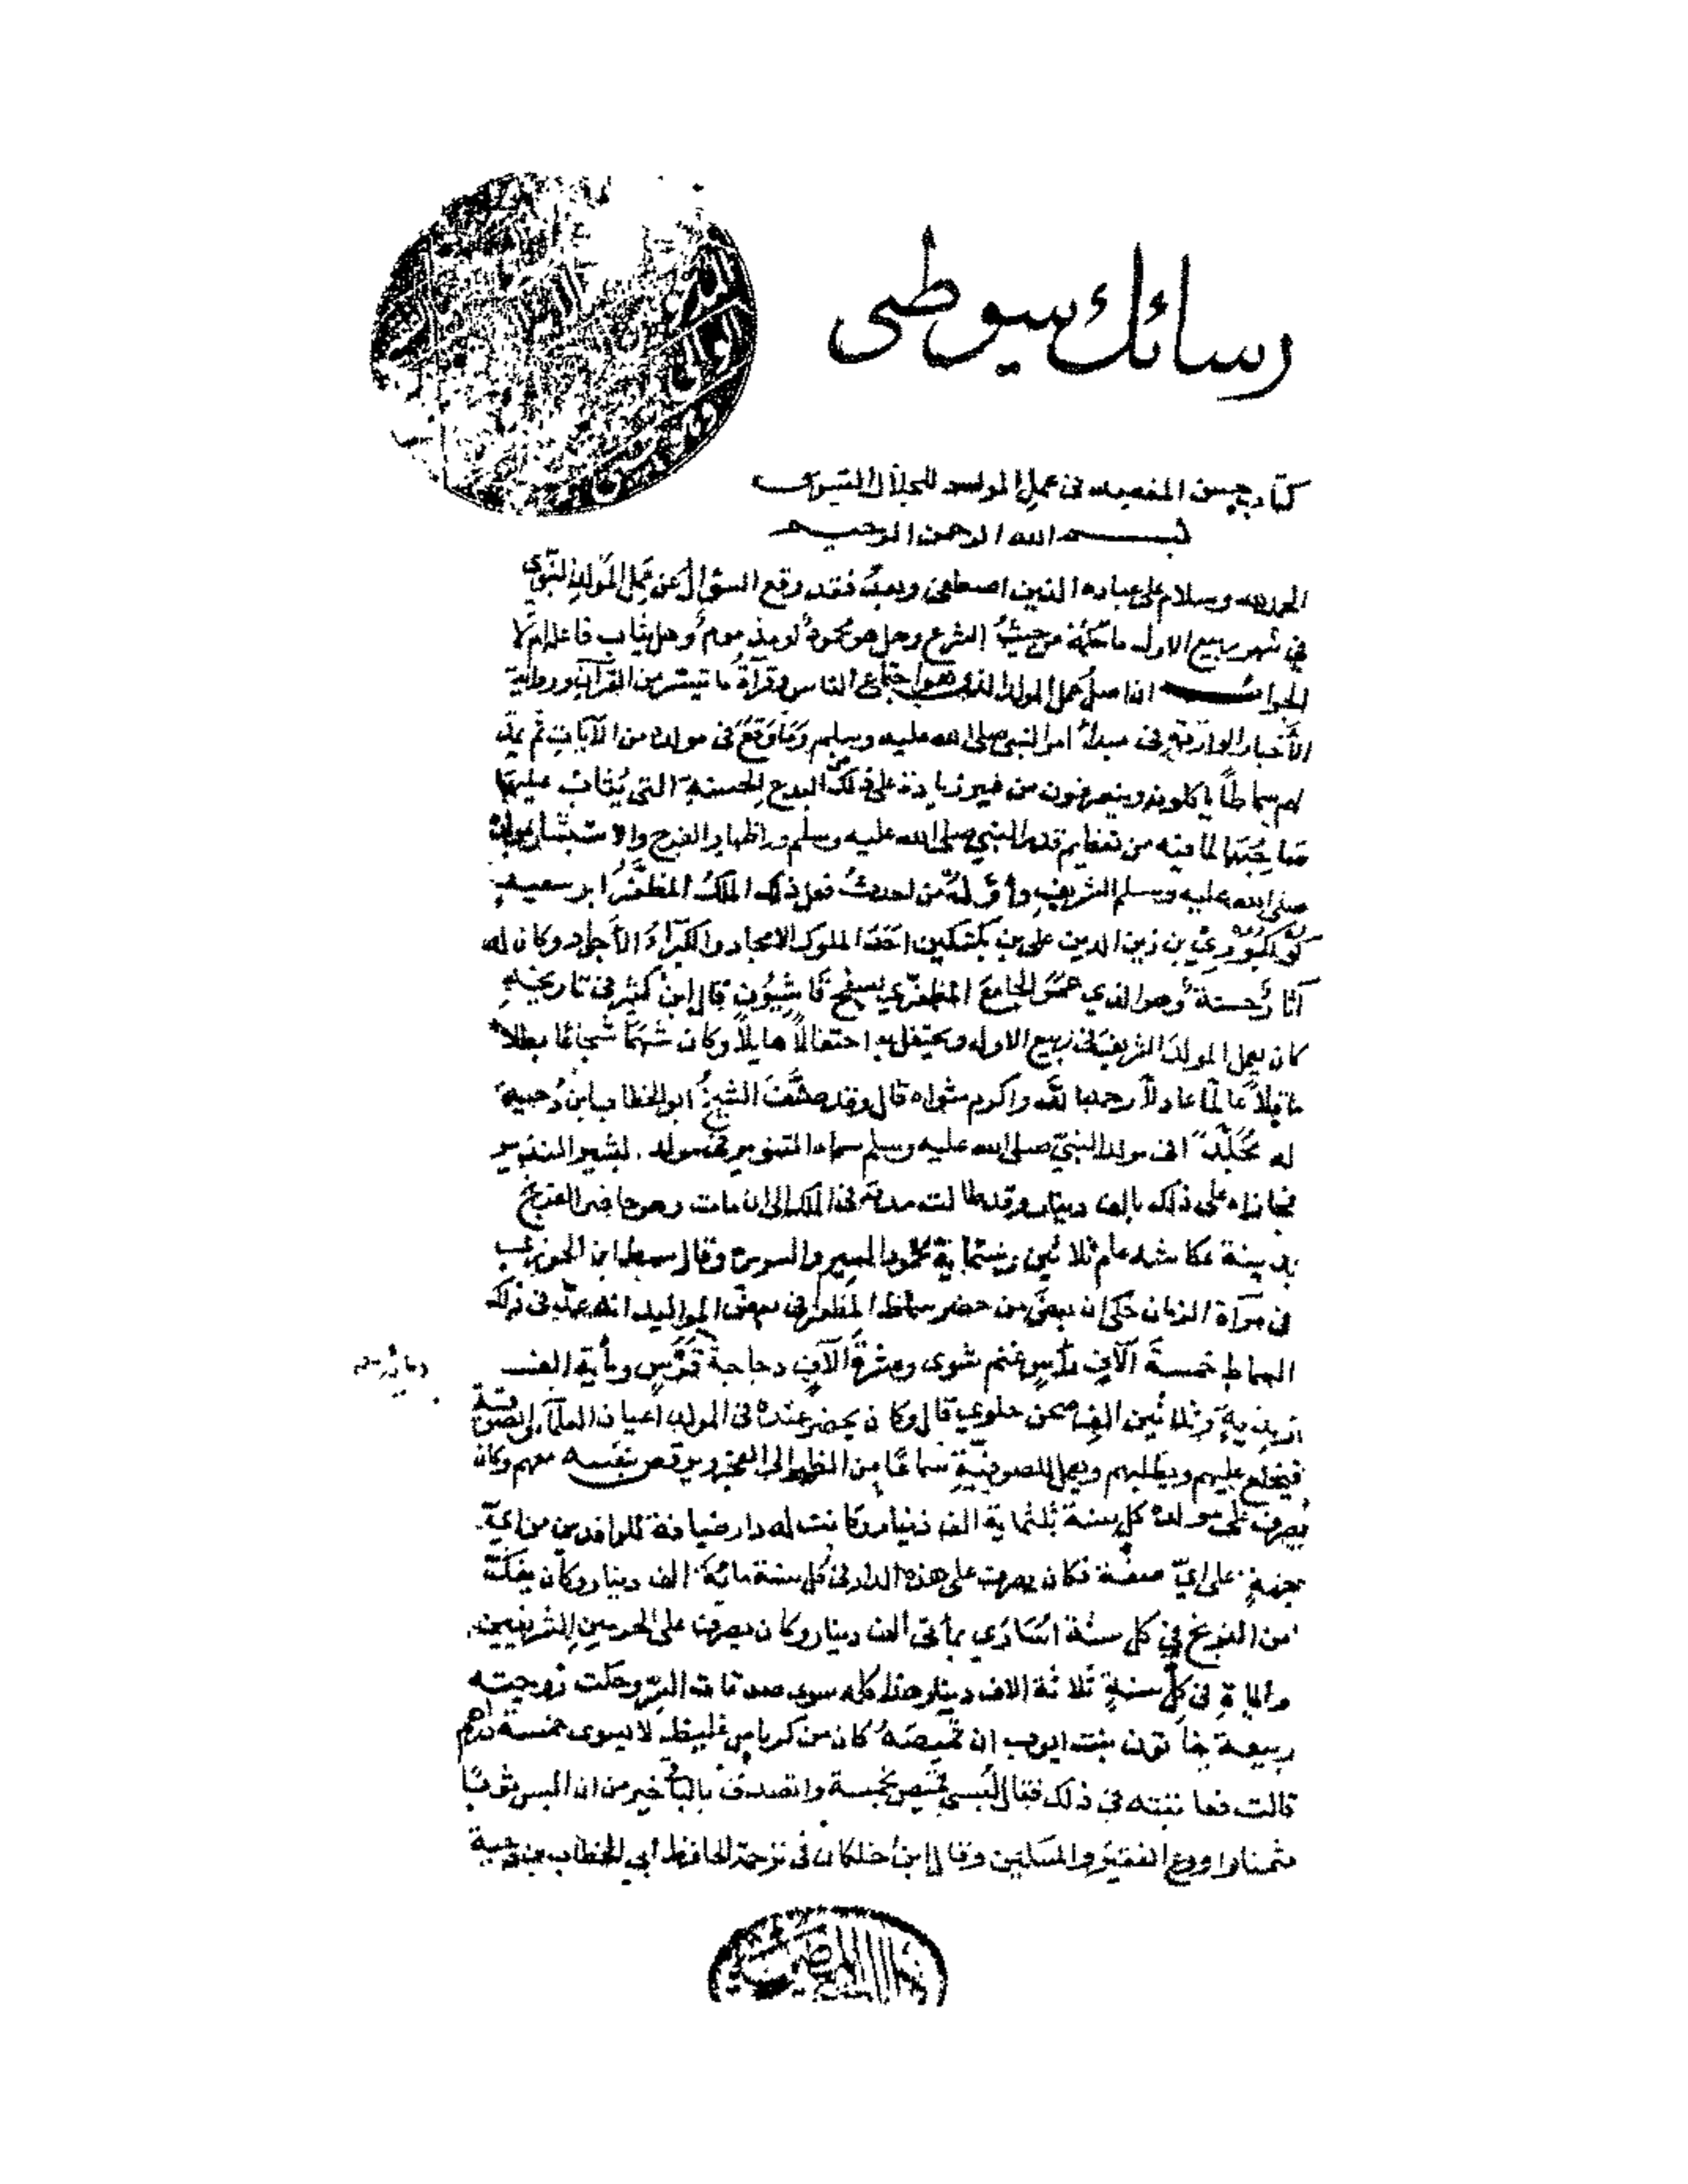 رسائل سيوطى
كتاب حسن المقصد فى عمل المولد للجلال السيوطى
بسم الله الرحمن الرحيم
الحمد لله وسلام على عباده الذين اصطفى وبعد فقد وقع السؤال عن عمل المولد النبوى
في شهر ربيع الاول ما حكمه من حيث الشرع وهل هو محمود أو مذموم وهل يثاب فاعله ام لا
الجواب ان اصل عمل المولد الذى هو اجتماع الناس وقرآة ما تيسر من القرآن ورواية
الأخبار الواردة فى مبدأ امر النبى صلى الله عليه وسلم وما وقع فى مولده من الآيات ثم يمد
لهم سماطًا يأكلونه وينصرفون من غير زيادة على ذلك من البدع الحسنة التى يثاب عليها
صاحبها لما فيه من تعظيم قدر النبي صلى الله عليه وسلم واظهار الفرح والاستبشار بمولده
صلى الله عليه وسلم الشريف وأول من احدث فعل ذلك الملك المظفر ابو سعيد
كوكبورى بن زين الدين على بن بكتكين احد الملوك الامجاد والكبراء الأجواد وكان له
آثار حسنة وهو الذي عمر الجامع المظفرى بسفح قاشيون قال ابن كثير فى تاريخه
كان يعمل المولد الشريف فى ربيع الاول ويحتفل به احتفالاً هايلاً وكان شهمًا شجاعًا بطلا
عاقلاً عالمًا عادلاً رحمه الله واكرم مثواه قال وقد صنف الشيخ ابو الخطاب ابن دحية
له مجلدًا فى مولد النبيّ صلى الله عليه وسلم سماه التنوير فى مولد البشير النذير
فجازاه على ذلك بالف دينار وقد طالت مدته فى الملك الى ان مات وهو حاصر الفرنج
بمدينة عكا سنة عام ثلاثين وستماية محمود السير والسريرة وقال سبط ابن الجوزى
فى مرآة الزمان حكى ان بعض من حضر سماط المظفر فى بعض المواليد انه عد فى ذلك
السماط خمسة آلاف رأس غنم شوى وعشرة آلاف دجاجة ومأية الف
زبدية وثلاثين الف صحن حلوى قال وكان يحضر عنده فى المولد اعيان العلمآء والصوفية
فيخلع عليهم ويعمل للصوفية سماعًا من الظهر الى الفجر ويرقص بنفسه معهم وكان
يصرف على مولده كل سنة ثلثماية الف دينار وكانت له دار ضيافة للوافدين من اى
جهة على اىّ صفة فكان يصرف على هذه الدار فى كل سنة مائة الف دينار وكان يفك
من الفرنج في كل سنة اسارى بمأتى ألف دينار وكان يصرف على الحرمين الشريفين
والمياه فى كل سنة ثلاثة الاف دينار هذا كله سوى صدقات السر وحكت زوجته
ربيعة خاتون بنت ايوب ان قميصه كان من كرباس غليظ لا يسوى خمسة دراهم
قالت فعاتبته فى ذلك فقال لبسى قميص بخمسة واتصدق بالباقى خير من ان البس ثوبًا
مثمنًا وادع الفقير والمسكين وقال ابن خلكان فى ترجمة الحافظ أبي الخطاب بن دحية